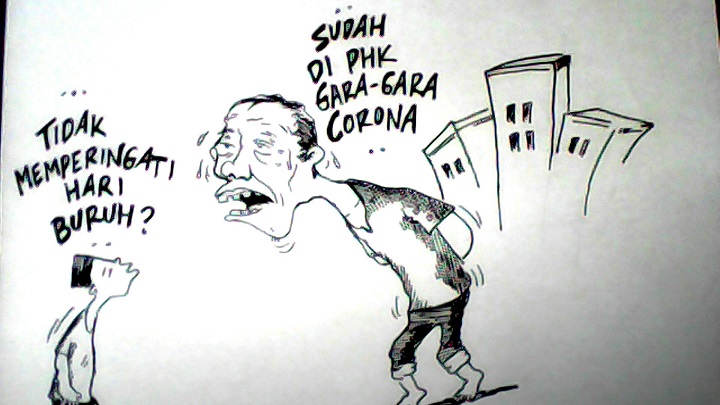 TIDAK
MEMPERINGATI
HARI
BURUH?
SUDAH
DI PHK
GARA-GARA
CORONA